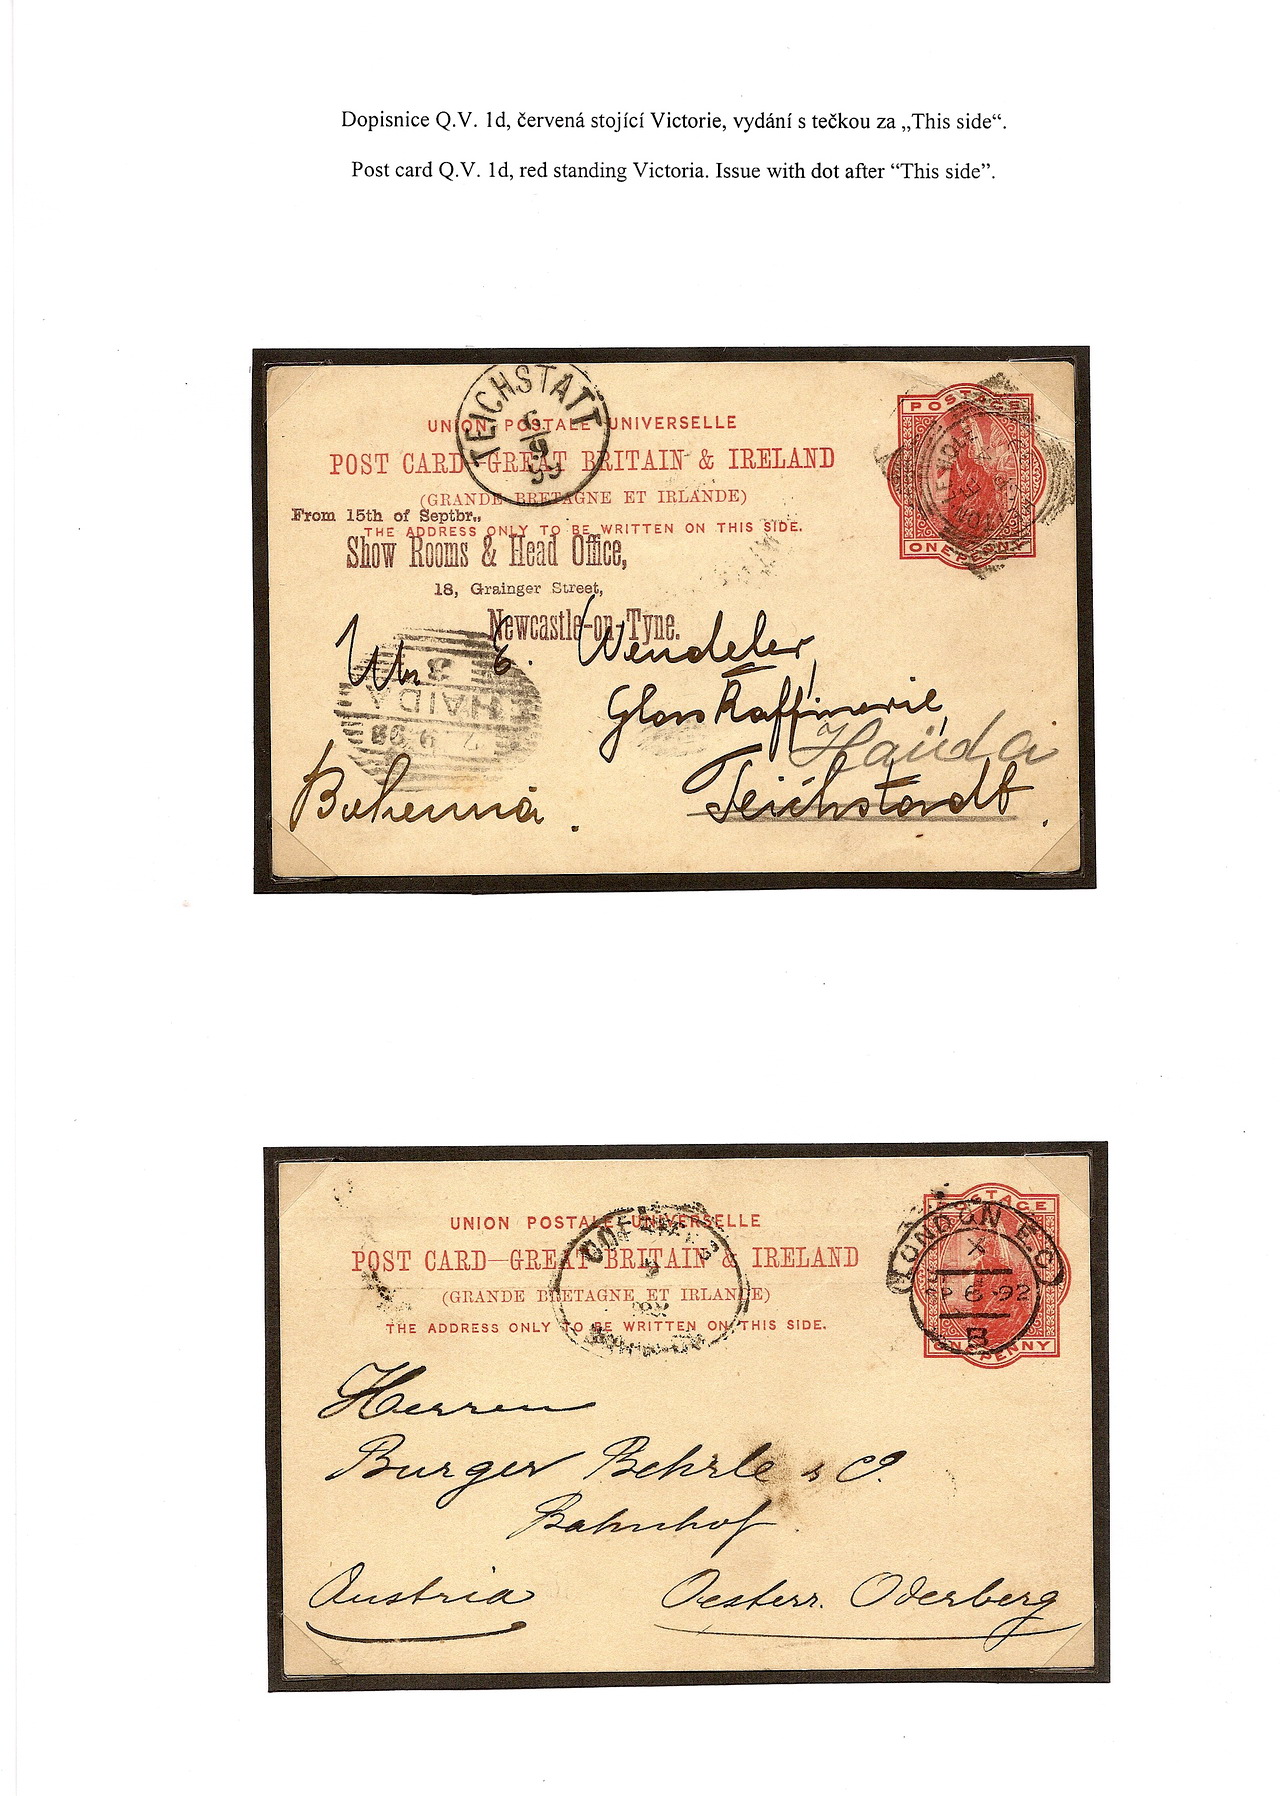 Dopisnice Q.V. 1d, červená stojící Victorie, vydání s tečkou za „This side“.
Post card Q.V. 1d, red standing Victoria. Issue with dot after “This side”.
TEICHSTATT
6
9
99
POSTAGE
UNION POSTALE UNIVERSELLE
POST CARD—GREAT BRITAIN & IRELAND
(GRANDE BRETAGNE ET IRLANDE)
From 15th of Septbr.,
THE ADDRESS ONLY TO BE WRITTEN ON THIS SIDE.
ONE PENNY
Show Rooms & Head Office,
18, Grainger Street,
Newcastle-on-Tyne.
Wendeler,
HAIDA
Glas Raffinerie,
Haida
Teichstadt.
Bohemia.
POSTAGE
UNION POSTALE UNIVERSELLE
POST CARD—GREAT BRITAIN & IRELAND
(GRANDE BRETAGNE ET IRLANDE)
THE ADDRESS ONLY TO BE WRITTEN ON THIS SIDE.
LONDON E.C
X
AP 6 92
B
ONE PENNY
Herren
Burger Behrle & Co.
Bahnhof
Austria
Oesterr. Oderberg